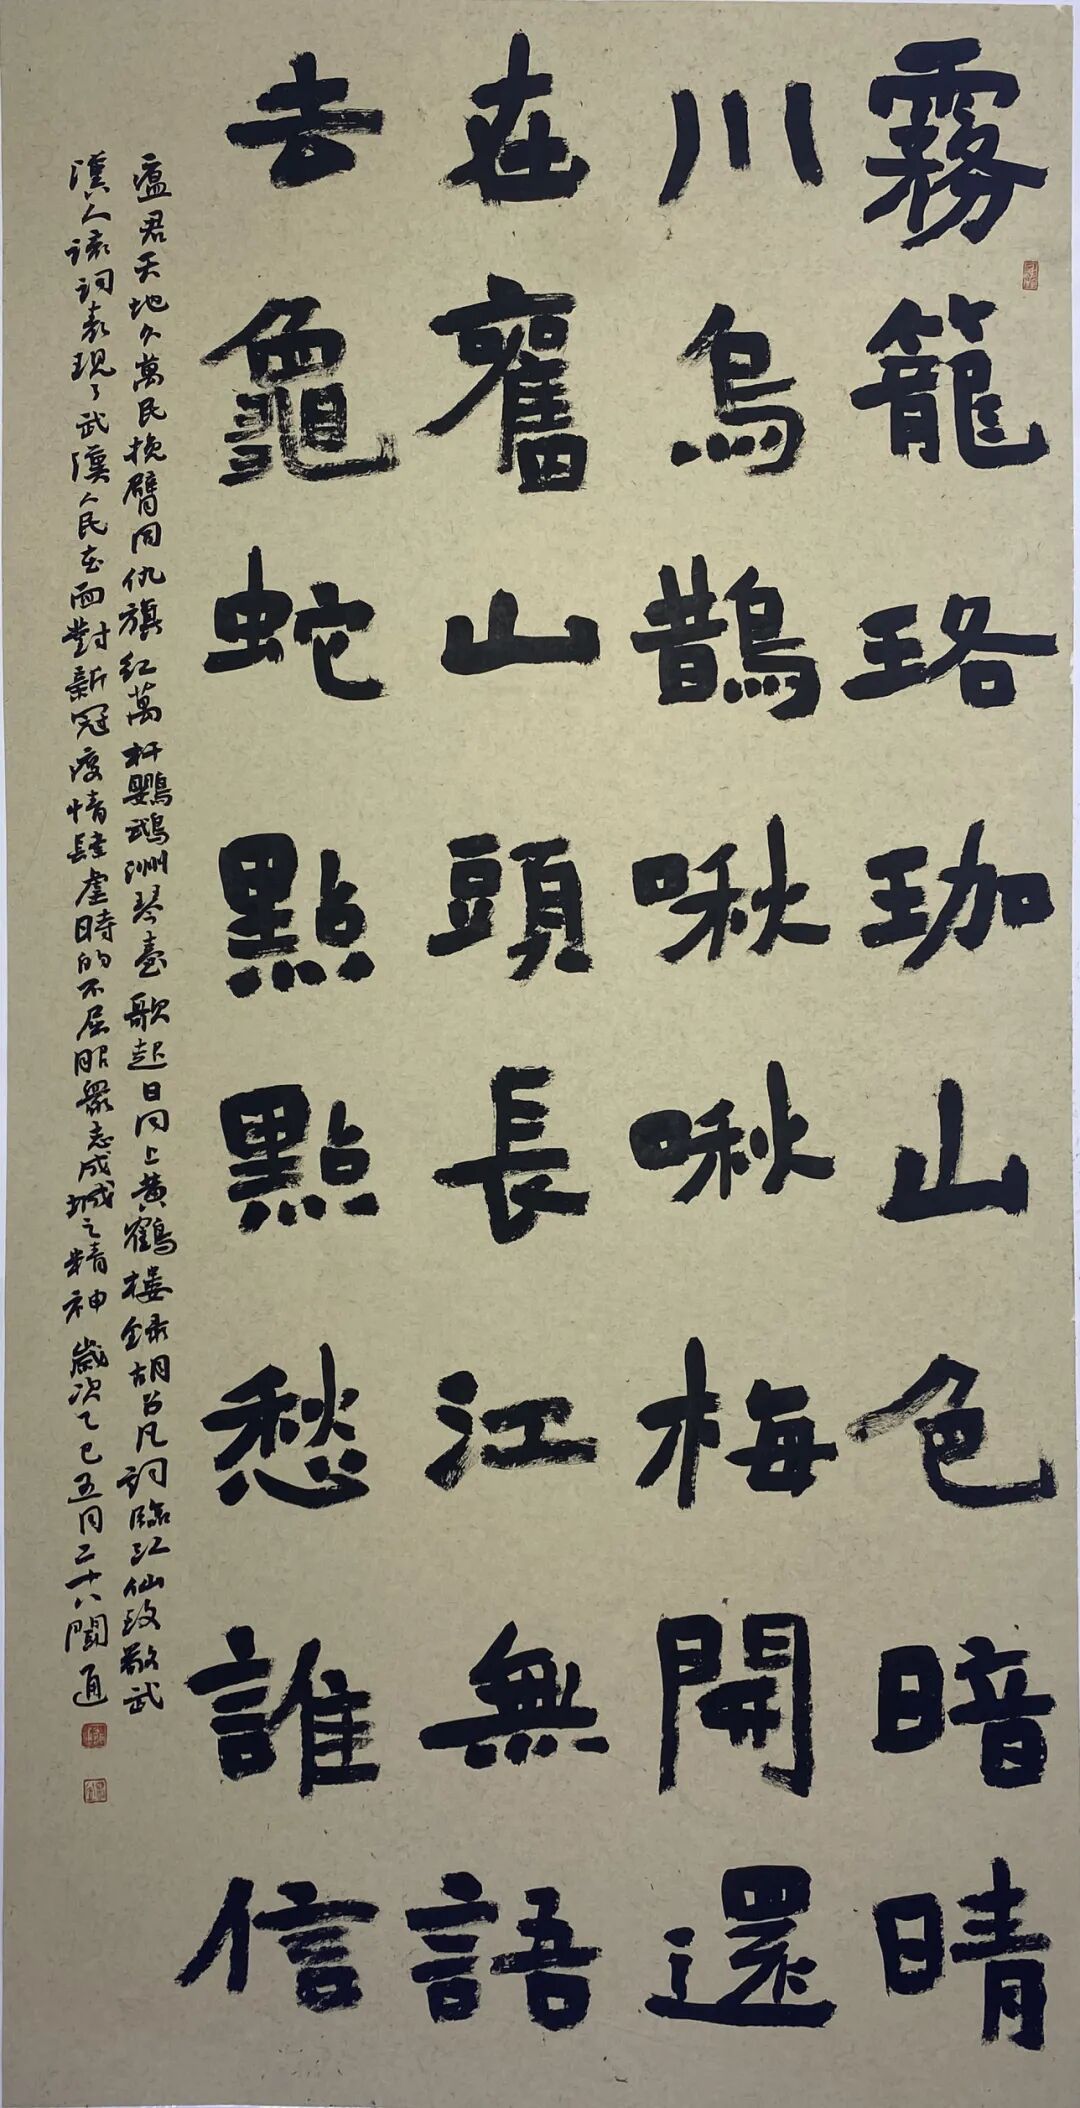 霧籠珞珈山色暗晴
川烏鵲啾啾梅開還
在舊山頭長江無語
去龜蛇點點愁誰信
瘟君天地久萬民挽臂同仇旗紅萬杆鸚鵡洲琴臺歌起日同上黃鶴樓錄胡呂凡詞臨江仙致敬武
漢人該詞表現了武漢人民在面對新冠疫情肆虐時的不屈服眾志成城之精神歲次乙巳五月二十八聞通